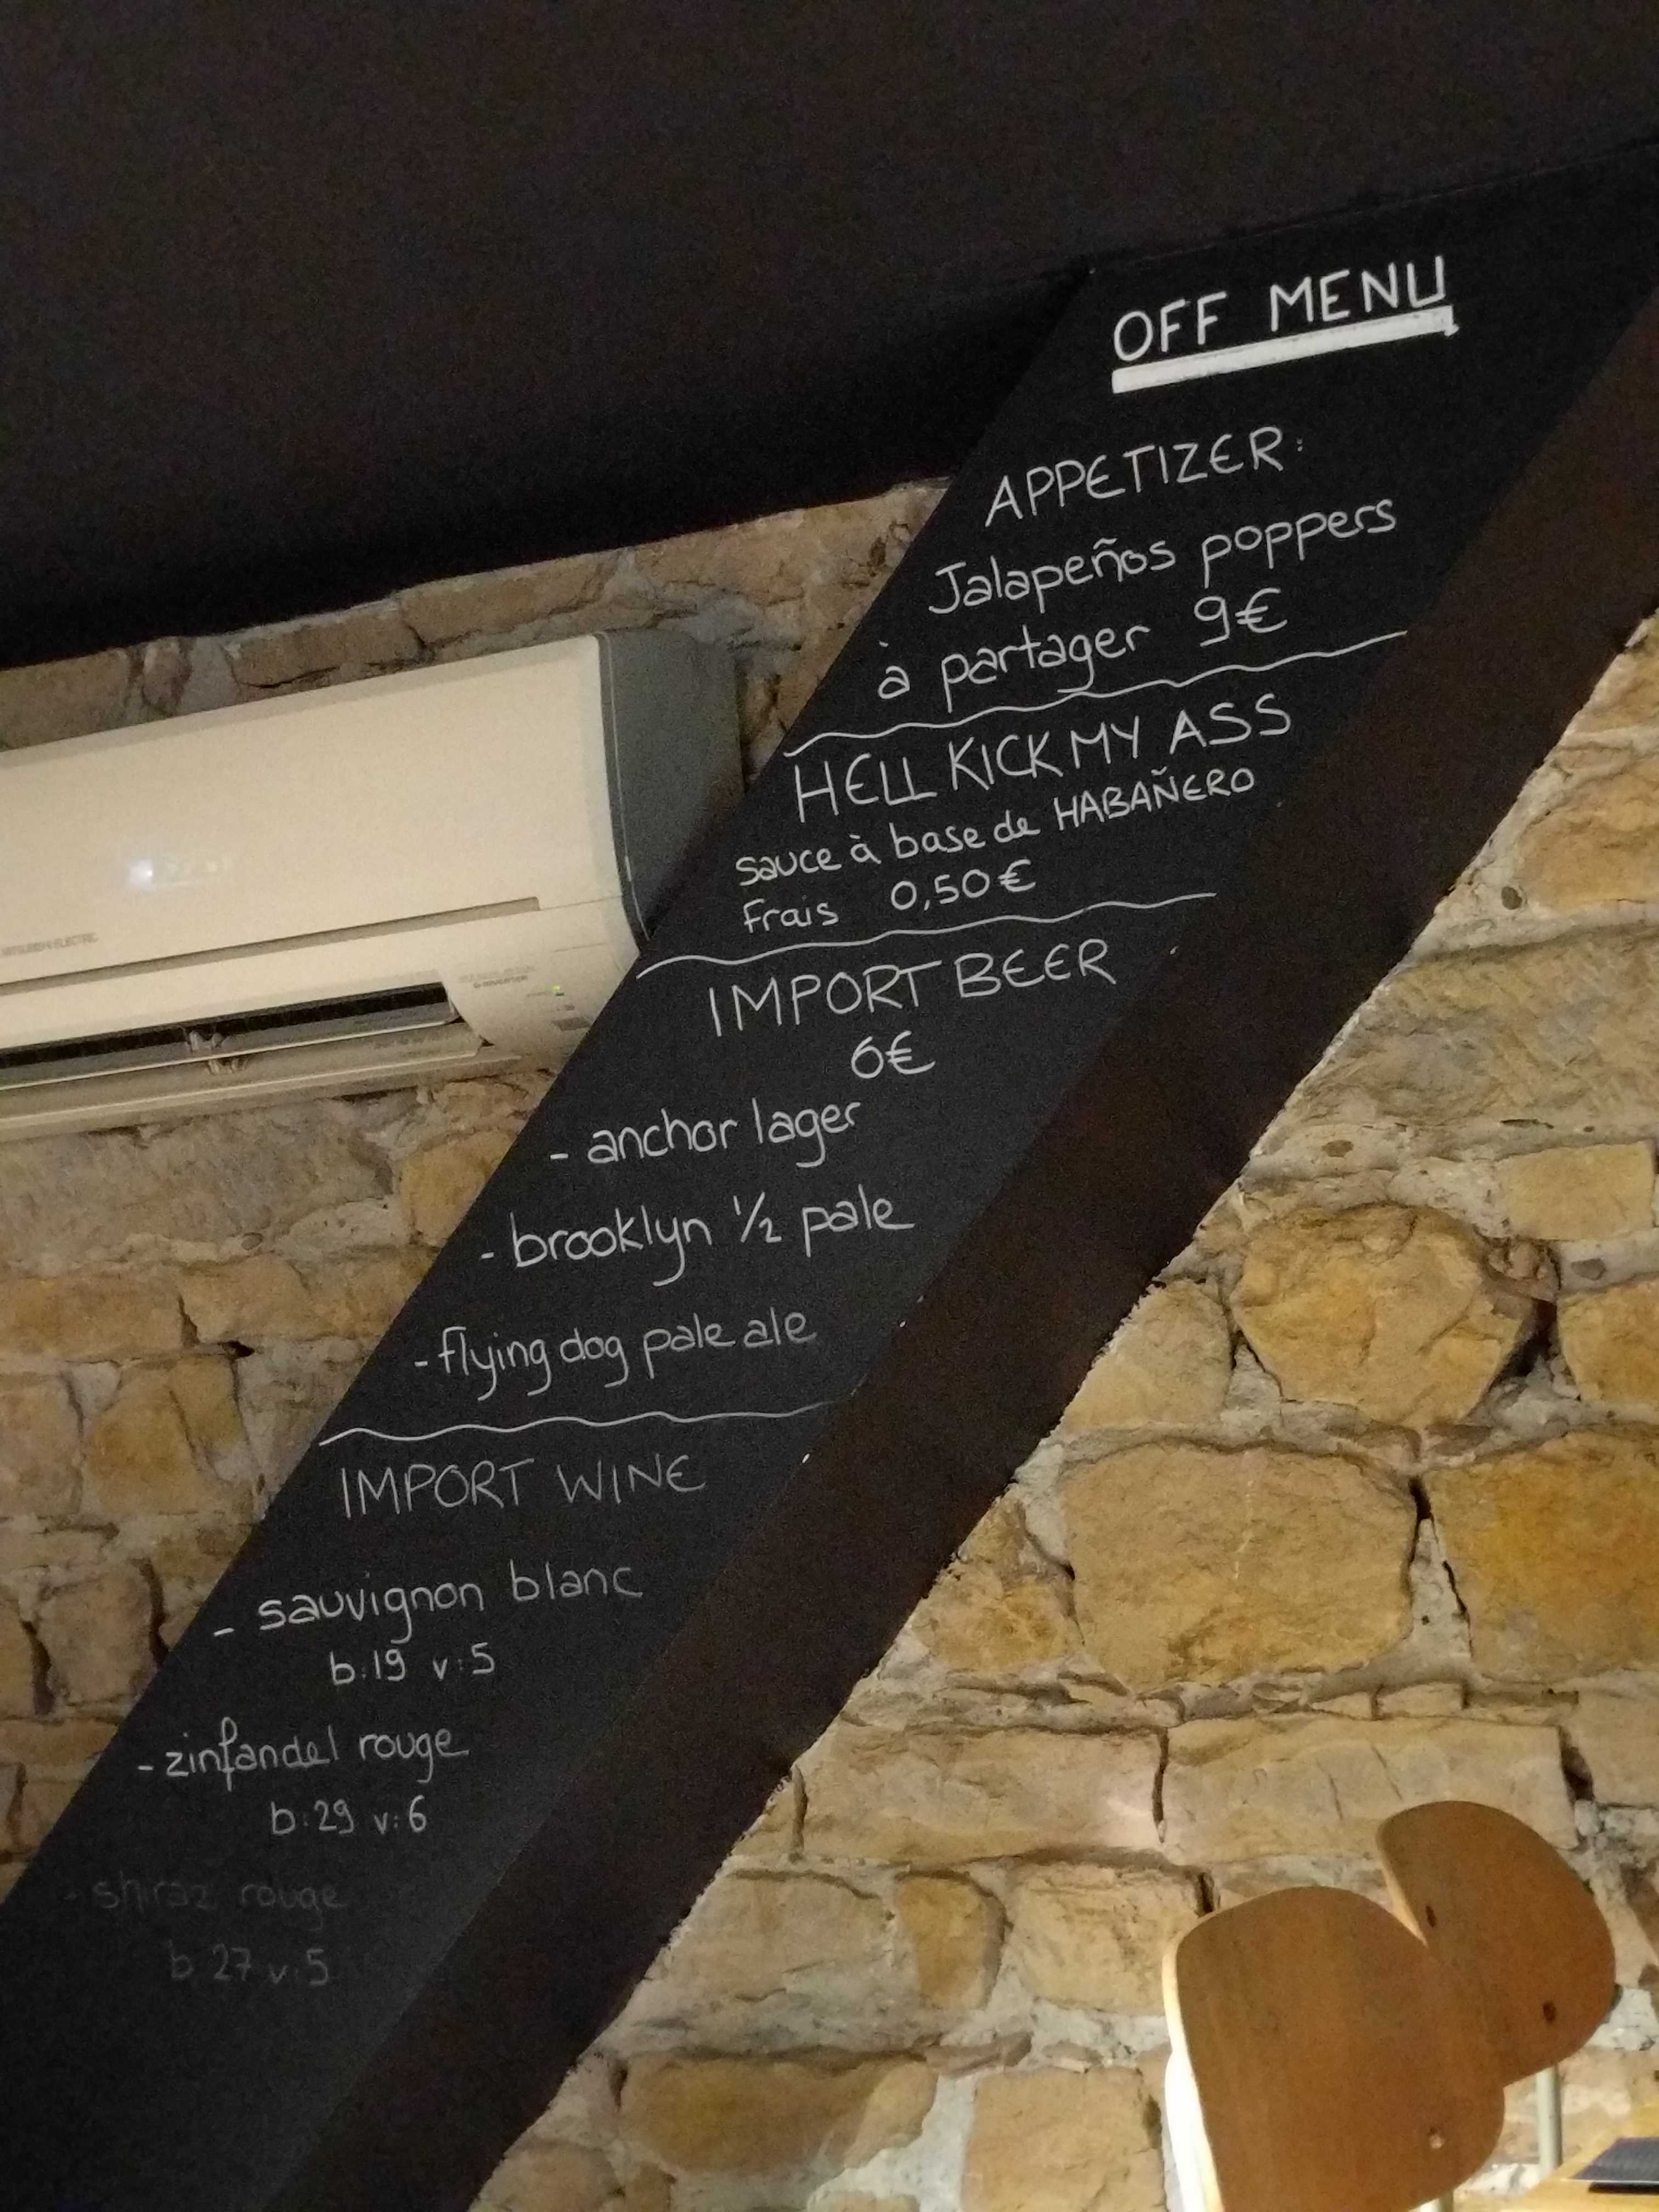 OFF MENU
APPETIZER:
Jalapeños poppers
à partager 9€
HELL KICK MY ASS
sauce à base de HABAÑERO
Frais 0,50€
IMPORT BEER
6€
- anchor lager
- brooklyn ½ pale
- flying dog pale ale
IMPORT WINE
- sauvignon blanc
b:19 v:5
- zinfandel rouge
b:29 v:6
- shiraz rouge
b:27 v:5
MITSUBISHI ELECTRIC